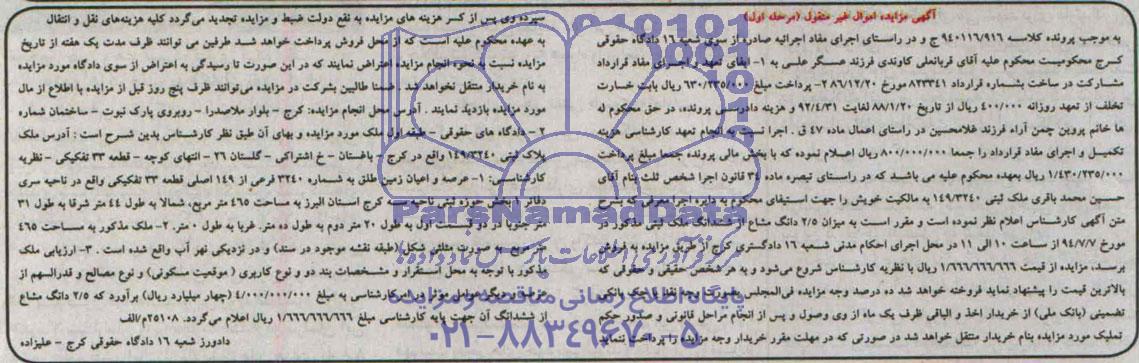 آگهی مزایده اموال غیر منقول (مرحله اول)
به موجب پرونده کلاسه ۹۴۰۱۱۶/۹۱۶ ج و در راستای اجرای مفاد اجرائیه صادره از سوی شعبه ۱۶ دادگاه حقوقی
کرج محکومیت محکوم علیه آقای قربانعلی کاوندی فرزند عسگر علی به ۱- ایفای تعهد و اجرای مفاد قرارداد
مشارکت در ساخت بشماره قرارداد ۸۲۳۳۴۱ مورخ ۸۶/۱۲/۲۰ ۲- پرداخت مبلغ ۶۳۰/۲۳۵/۰۰۰ ریال بابت خسارت
تخلف از تعهد روزانه ۴۰۰/۰۰۰ ریال از تاریخ ۸۸/۱/۲۰ لغایت ۹۲/۴/۳۱ و هزینه دادرسی پرونده، در حق محکوم له
ها خانم پروین چمن آراء فرزند غلامحسین در راستای اعمال ماده ۴۷ ق . اجرا نسبت به انجام تعهد کارشناسی هزینه
تکمیل و اجرای مفاد قرارداد را جمعا ۸۰۰/۰۰۰/۰۰۰ ریال اعلام نموده که با بخش مالی پرونده جمعا مبلغ پرداخت
۱/۴۳۰/۲۳۵/۰۰۰ ریال بعهده محکوم علیه می باشد که در راستای تبصره ماده ۳۴ قانون اجرا شخص ثلث بنام آقای
حسین محمد باقری ملک ثبتی ۱۴۹/۳۲۴۰ به مالکیت خویش را جهت استیفای محکوم به دایره اجرا معرفی که بشرح
متن آگهی کارشناس اعلام نظر نموده است و مقرر است به میزان ۲/۵ دانگ مشاع از ششدانگ ملک ثبتی مذکور در
مورخ ۹۴/۷/۷ از ساعت ۱۰ الی ۱۱ در محل اجرای احکام مدنی شعبه ۱۶ دادگستری کرج از طریق مزایده به فروش
برسد، مزایده از قیمت ۱/۶۶۶/۶۶۶/۶۶۶ ریال با نظریه کارشناس شروع می‌شود و به هر شخص حقیقی و حقوقی که
بالاترین قیمت را پیشنهاد نماید فروخته خواهد شد ده درصد وجه مزایده فی‌المجلس بصورت وجه نقد یا چک بانکی
تضمینی (بانک ملی) از خریدار اخذ و الباقی ظرف یک ماه از وی وصول و پس از انجام مراحل قانونی و صدور حکم
تملیک مورد مزایده بنام خریدار منتقل خواهد شد در صورتی که در مهلت مقرر خریدار وجه مزایده را پرداخت ننماید
سپرده وی پس از کسر هزینه های مزایده به نفع دولت ضبط و مزایده تجدید می‌گردد کلیه هزینه‌های نقل و انتقال
به عهده محکوم علیه است که از محل فروش پرداخت خواهد شد طرفین می توانند ظرف مدت یک هفته از تاریخ
مزایده نسبت به نحوه انجام مزایده اعتراض نمایند که در این صورت تا رسیدگی به اعتراض از سوی دادگاه مورد مزایده
به نام خریدار منتقل نخواهد شد . ضمنا طالبین بشرکت در مزایده می‌توانند ظرف پنج روز قبل از مزایده با اطلاع از مال
مورد مزایده بازدید نمایند . آدرس محل انجام مزایده: کرج - بلوار ملاصدرا - روبروی پارک نبوت - ساختمان شماره
۲ - دادگاه های حقوقی - طبقه اول ملک مورد مزایده و بهای آن طبق نظر کارشناس بدین شرح است : آدرس ملک
پلاک ثبتی ۱۴۹/۳۲۴۰ واقع در کرج - باغستان - خ اشتراکی - گلستان ۲۶ - انتهای کوچه - قطعه ۳۳ تفکیکی - نظریه
کارشناسی: ۱- عرصه و اعیان زمین طلق به شماره ۳۲۴۰ فرعی از ۱۴۹ اصلی قطعه ۳۳ تفکیکی واقع در ناحیه سری
دفاتر ۱ بخش حوزه ثبتی ناحیه سه کرج استان البرز به مساحت ۴۶۵ متر مربع، شمالا به طول ۴۴ متر شرقا به طول ۳۱
متر جنوبا در دو قسمت اول به طول ۲۰ متر دوم به طول ده متر. غربا به طول ۰ متر. ۲- ملک مذکور به مساحت ۴۶۵
متر مربع به صورت مثلثی شکل (طبقه نقشه موجود در سند) و در نزدیکی نهر آب واقع شده است . ۳- ارزیابی ملک
مذکور با توجه به محل استقرار و مشخصات بند دو و نوع کاربری ( موقعیت مسکونی) و نوع مصالح و قدرالسهم از
عرصه و دیگر عوامل موثر در امر کارشناسی به مبلغ ۴/۰۰۰/۰۰۰/۰۰۰ (چهار میلیارد ریال) برآورد که ۲/۵ دانگ مشاع
از ششدانگ آن جهت پایه کارشناسی مبلغ ۱/۶۶۶/۶۶۶/۶۶۶ ریال اعلام می‌گردد. ۲۵۱۰۸م/الف
دادورز شعبه ۱۶ دادگاه حقوقی کرج - علیزاده
ParsNamadData
مرکز فرآوری اطلاعات پارس نماد داده‌ها
پایگاه اطلاع رسانی مناقصه و مزایده
۰۲۱-۸۸۳۴۹۶۷۰-۵